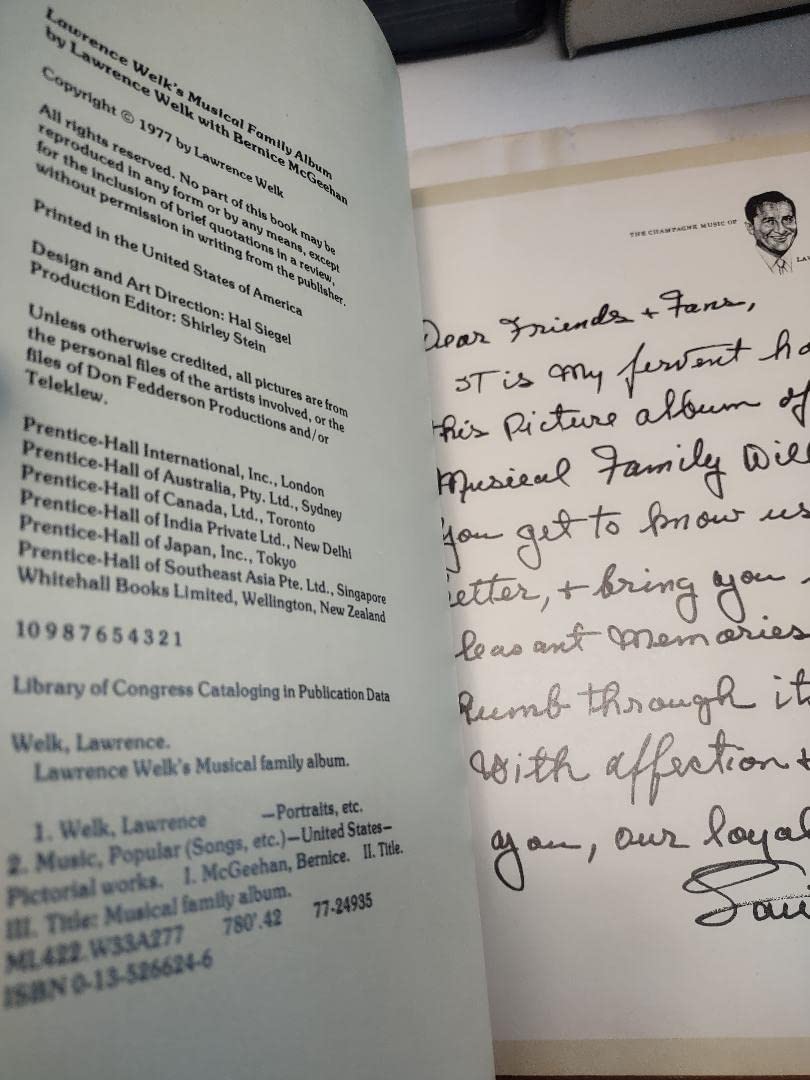 Lawrence Welk's Musical Family Album
by Lawrence Welk with Bernice McGeehan
Copyright © 1977 by Lawrence Welk
All rights reserved. No part of this book may be
reproduced in any form or by any means, except
for the inclusion of brief quotations in a review,
without permission in writing from the publisher.
Printed in the United States of America
Design and Art Direction: Hal Siegel
Production Editor: Shirley Stein
Unless otherwise credited, all pictures are from
the personal files of the artists involved, or the
files of Don Fedderson Productions and/or
Teleklew.
Prentice-Hall International, Inc., London
Prentice-Hall of Australia, Pty. Ltd., Sydney
Prentice-Hall of Canada, Ltd., Toronto
Prentice-Hall of India Private Ltd., New Delhi
Prentice-Hall of Japan, Inc., Tokyo
Prentice-Hall of Southeast Asia Pte. Ltd., Singapore
Whitehall Books Limited, Wellington, New Zealand
10 9 8 7 6 5 4 3 2 1
Library of Congress Cataloging in Publication Data
Welk, Lawrence.
Lawrence Welk's Musical family album.
1. Welk, Lawrence —Portraits, etc.
2. Music, Popular (Songs, etc.)—United States—
Pictorial works. I. McGeehan, Bernice. II. Title.
III. Title: Musical family album.
ML422.W33A277 780'.42 77-24935
ISBN 0-13-526624-6
THE CHAMPAGNE MUSIC OF
LAW
Dear Friends + Fans,
It is my fervent ho
this picture album of
Musical Family Will
you get to know us
etter, + bring you
leasant memories
humb through it
With affection +
you, our loyal